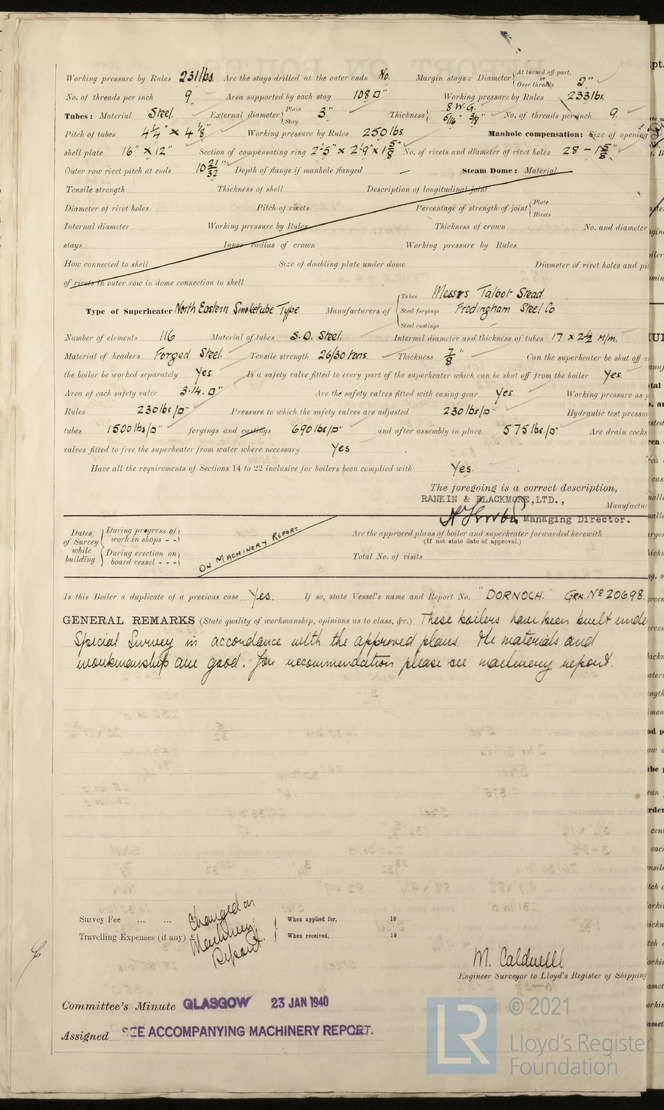 Working pressure by Rules 231 lbs Are the stays drilled at the outer ends No. Margin stays: Diameter { At turned off part, or Over threads 2"
No. of threads per inch 9 Area supported by each stay 108 □" Working pressure by Rules 233 lbs.
Tubes: Material Steel. External diameter { Plain Stay 3" Thickness { 8 W.G. 5/16" 3/8" No. of threads per inch 9.
Pitch of tubes 4 1/4" x 4 1/8" Working pressure by Rules 250 lbs. Manhole compensation: Size of opening
shell plate 16" x 12" Section of compensating ring 2'-5" x 2'-9" x 1 5/8" No. of rivets and diameter of rivet holes 28 - 1 5/8"
Outer row rivet pitch at ends 10 21/32" Depth of flange if manhole flanged — Steam Dome: Material
Tensile strength Thickness of shell Description of longitudinal joint
Diameter of rivet holes Pitch of rivets Percentage of strength of joint { Plate Rivets
Internal diameter Working pressure by Rules Thickness of crown No. and diameter
stays Inner radius of crown Working pressure by Rules
How connected to shell Size of doubling plate under dome Diameter of rivet holes and pi
of rivets in outer row in dome connection to shell
Type of Superheater North Eastern Smoketube Type Manufacturers of { Tubes Messrs Talbot Stead
Steel forgings Frodingham Steel Co
Steel castings
Number of elements 116 Material of tubes S.D. Steel. Internal diameter and thickness of tubes 17 x 2½ M/m.
Material of headers Forged Steel. Tensile strength 26/30 tons. Thickness 7/8" Can the superheater be shut off a
the boiler be worked separately Yes. Is a safety valve fitted to every part of the superheater which can be shut off from the boiler Yes.
Area of each safety valve 3.14 □" Are the safety valves fitted with easing gear Yes. Working pressure as p
Rules 230 lbs/□" Pressure to which the safety valves are adjusted 230 lbs/□" Hydraulic test pressur
tubes 1500 lbs/□" forgings and castings 690 lbs/□" and after assembly in place 575 lbs/□" Are drain cocks
valves fitted to free the superheater from water where necessary Yes
Have all the requirements of Sections 14 to 22 inclusive for boilers been complied with Yes.
The foregoing is a correct description,
RANKIN & BLACKMORE, LTD.,
Manufactu
Managing Director.
Dates of Survey while building { During progress of work in shops - -
During erection on board vessel - - -
ON MACHINERY REPORT
Are the approved plans of boiler and superheater forwarded herewith
(If not state date of approval.)
Total No. of visits
Is this Boiler a duplicate of a previous case Yes. If so, state Vessel's name and Report No. "DORNOCH. GRK. No 20698
GENERAL REMARKS (State quality of workmanship, opinions as to class, &c.) These boilers have been built unde
Special Survey in accordance with the approved plans. The materials and
workmanship are good. For recommendation please see machinery report.
Survey Fee ... ... When applied for, 19
Travelling Expenses (if any) £ When received, 19
Charged on
Machinery
Report.
M. Caldwell
Engineer Surveyor to Lloyd's Register of Shipping
Committee's Minute GLASGOW 23 JAN 1940
Assigned SEE ACCOMPANYING MACHINERY REPORT.
LR © 2021
Lloyd's Register
Foundation